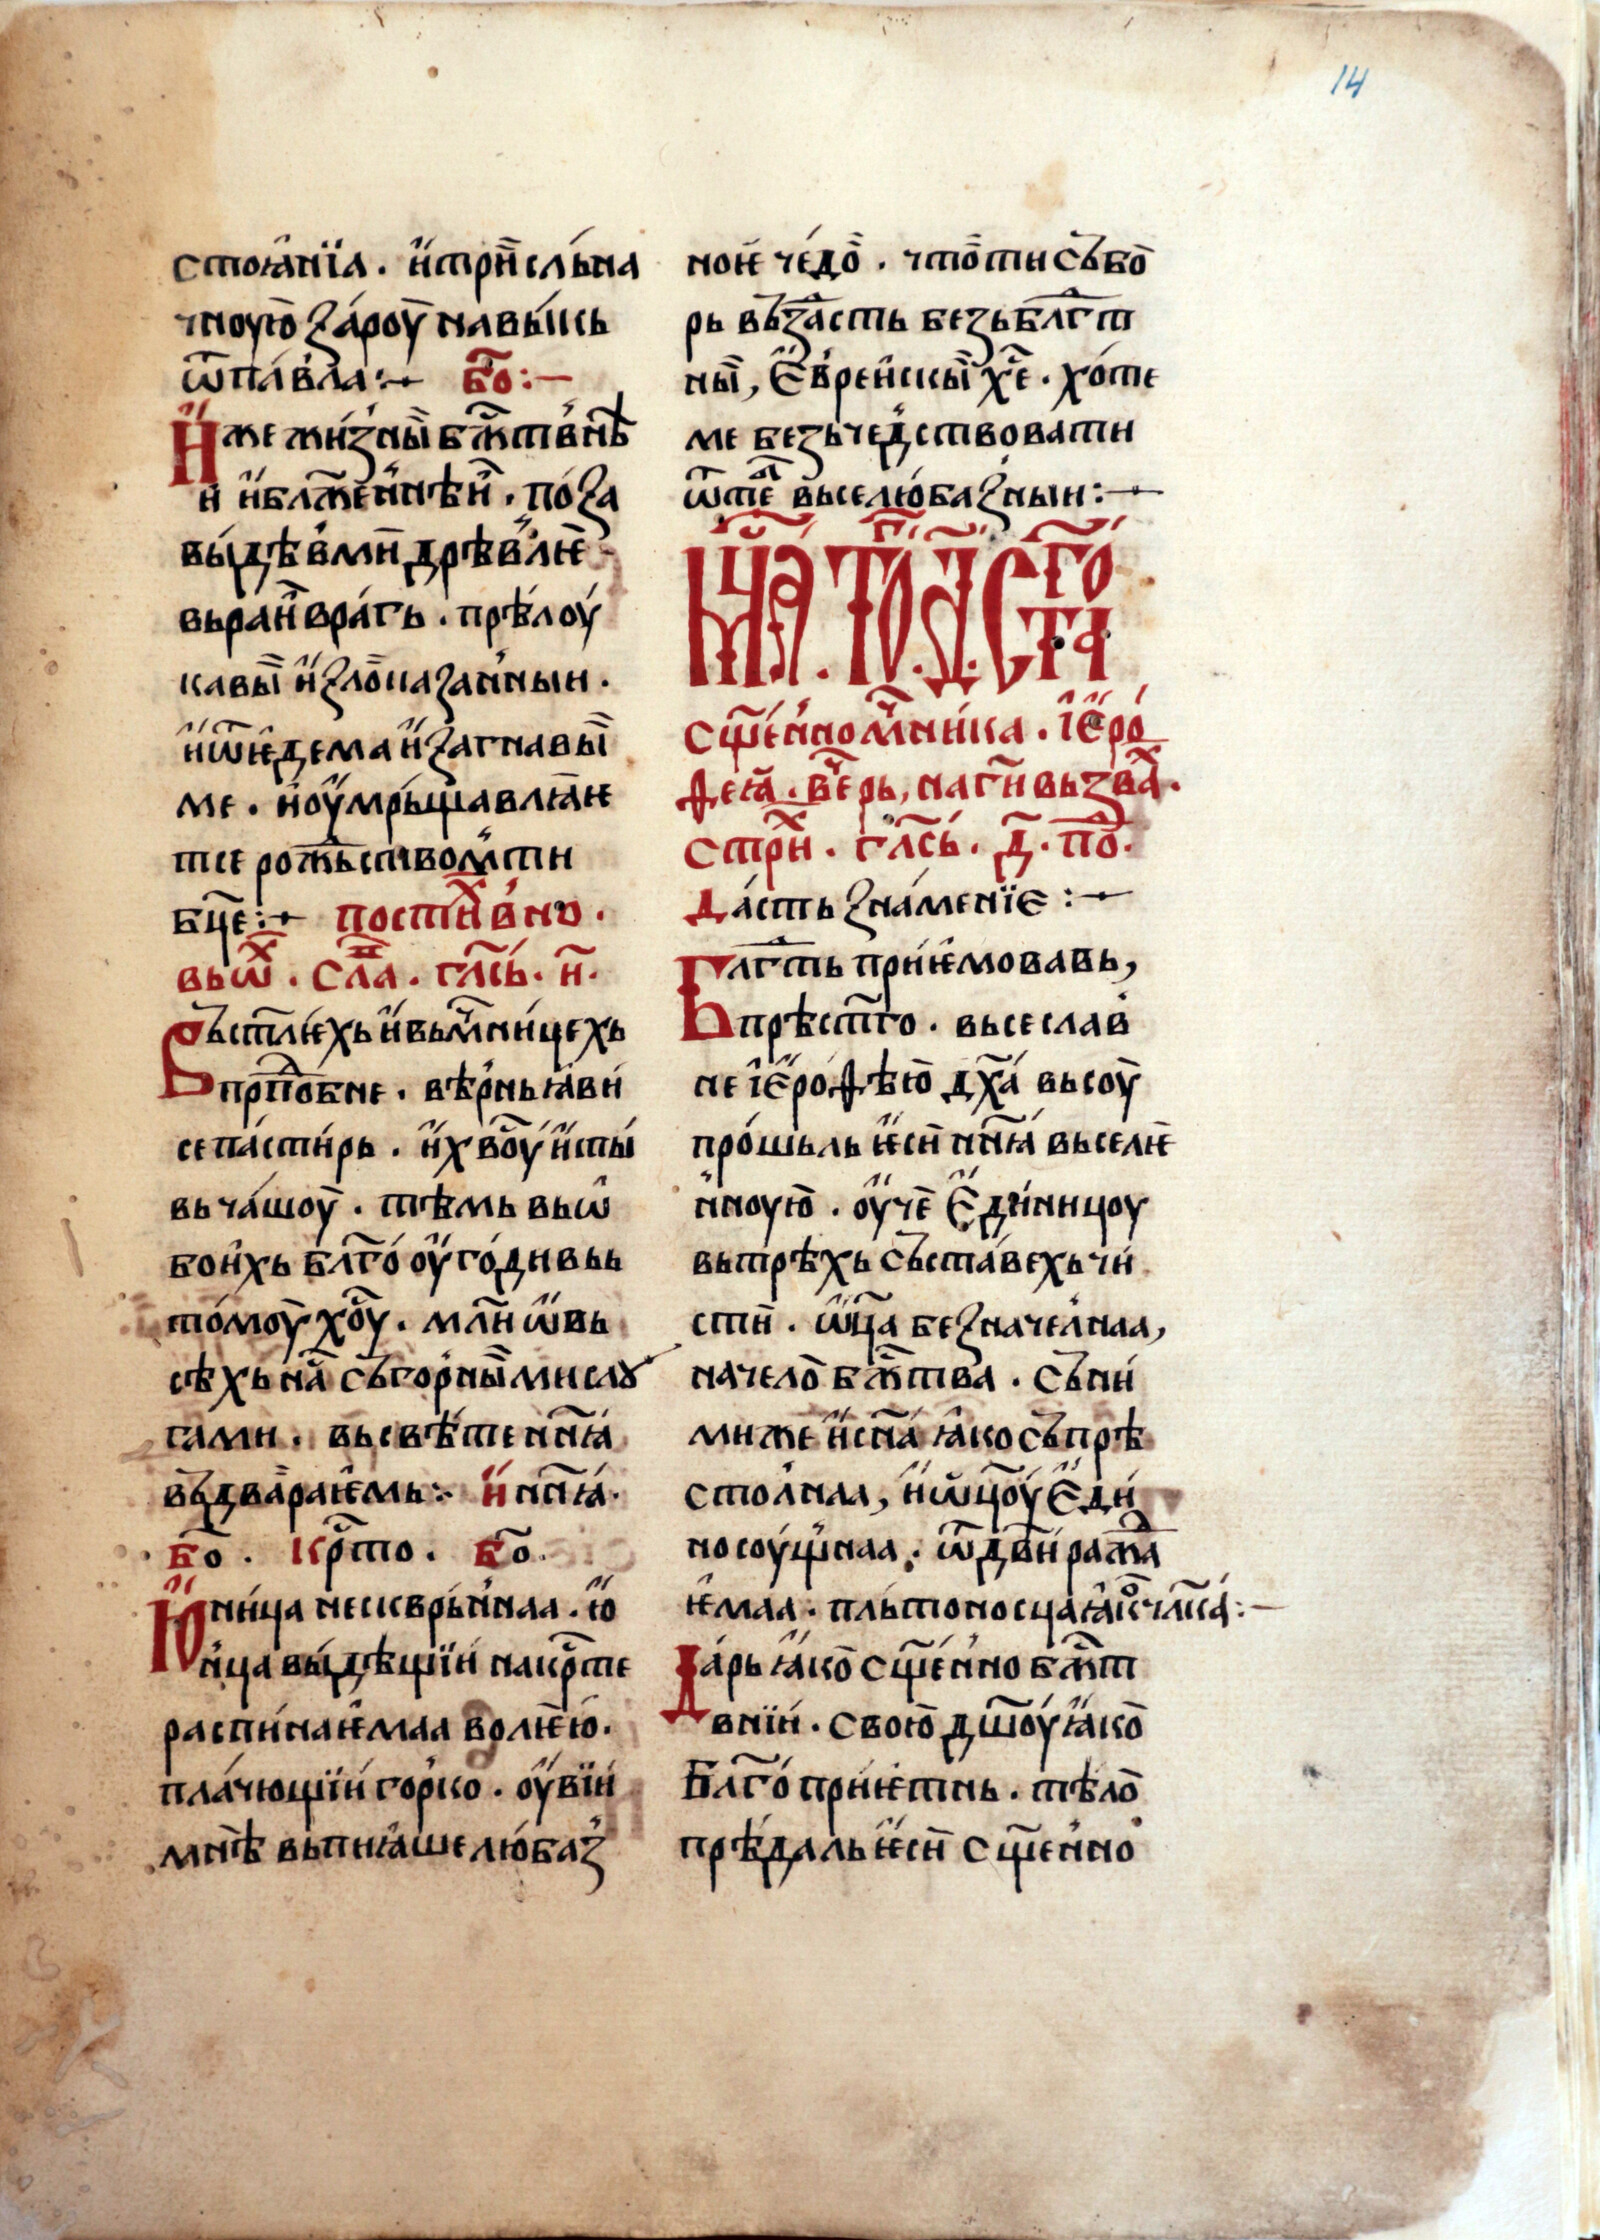 14
стоꙗ́нїа. и҆трїи҃сль́на
чноую̀ заⷬ҇роу̀ навы́кь
ѿпа́вла:~ бо҃:~
И҆же жи́зны̏ бж҃ствнѣ
и и҆блж҃е́ннѣи. по́за
вы́дѣвми̏ дрѣ́влѥ
вьран̏вра́гь. прѣ́лоу
кавы̏ и҆зло̏каза́нныи.
и҆ѿѥ҆дема и҆загнавы̏
ме. и҆оу҆мрь́щавлꙗ̀ѥ
тсе рожⷣьством̏ти
бц҃е:~ постиⷯв́но.
вьѿⷯ. сла҃. гла҃сь. и҃.
Въст҃лѥ́хь и҆вьмⷱ҇ни́цехь
прпⷣо́бне. вѣ́рнь ꙗ҆ви́
се па́стирь. и҆хв҃оу́ и҆ты́
вь ча́шоу̀. тѣ́мь вьѡ҆
бои́хь бл҃го́ оу҆го́дивьь
то́моу̀ хо҃у. мл҃и ѡ҆вь
сѣхь на҃ съго́рны̏мислꙋ
гами. вьсвѣ́те нн҃ꙗ
въ́двара̀ѥмь:~ и҆ нн҃ꙗ.
бо҃. крⷭ҇то. бо҃.
Ю҆ни́ца нескврь́ннаа. ю҆
нца вы́дѣщїи́ накрⷭ҇те
распи́наѥ҆маа волѥ́ю.
пла́чющїи́ го́рко. оу҆вїи́
мнѣ̀ вьпиꙗ́ше лю́баз
нои̏ че́до̀. что̏ти съ́бо̀
рь въ́зⷣасть безьблгⷣт
ны̏, є҆вреи́скы̏ хе҃. хо́те
ме безьче́дствовати
ѿте҃ вьселю́базныи:~
Мцⷭ҇а. то҃. д҃. ст҃го
сщ҃е́нномⷱ҇ни́ка. і҆є҆ро́
ѳеꙗ҆. веⷱ҇рь, наг҃и вьзваⷯ.
стриⷯ. гла҃сь. д҃. поⷣ.
Да́сть зна́менїе:~
Блгⷣть прии́ѥмовавь,
прѣст҃го. вьсеслав
не і҆є҆роѳѣю̀ дх҃а́ вьсоу̀
про́шьль ѥ҆си̏ нн҃ꙗ́ вьселѥ
нноую̀. оу҆че̏ є҆ди́ницоу
вьтрѣ́хь съста́вехь чи́
сти̏. ѡ҆ц҃а безначе́лнаа,
начело̀ бж҃тва. съни́
миже и҆сн҃а ꙗ҆косъпрѣ
сто́лнаа, и҆ѡ҆ц҃оу є҆ди́
носоу́щнаа. ѿдв҃и́ ражⷣа
ѥ҆маа. пльтоносца ꙗ҆коⷤ чл҃ка́:~
Да́рь ꙗ҆ко̀ сщ҃е́нно бж҃т
внїи́. свою̀ дш҃оу́ ꙗ҆ко̀
бл҃го́ прии́ѥтнь. тѣло̀
прѣ́даль ѥ҆си̏ сщ҃е́нно